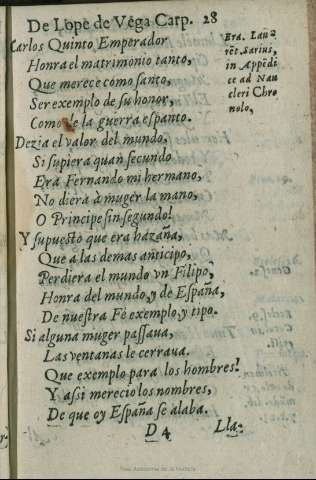 De Lope de Vega Carp. 28
Carlos Quinto Emperador
Honra el matrimonio tanto,
Que merece como santo,
Ser exemplo de su honor,
Como de la guerra espanto.
Dezia el valor del mundo,
Si supiera quan fecundo
Era Fernando mi hermano,
No diera à muger la mano,
O Principe sin segundo!
Y supuesto que era hazaña,
Que a las demas anticipo,
Perdiera el mundo vn Filipo,
Honra del mundo, y de España,
De nuestra Fè exemplo, y tipo.
Si alguna muger passaua,
Las ventanas le cerraua.
Que exemplo para los hombres!
Y assi merecio los nombres,
De que oy España se alaba.
D 4
Lla-
Bra. Lau
rēt. Sarius,
in Appēdi
ce ad Nau
cleri Chro
nolo,